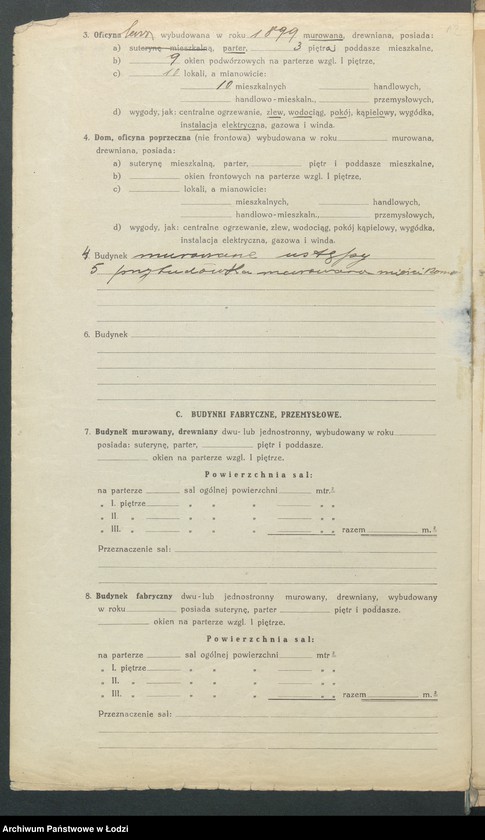 3. Oficyna wybudowana w roku 1899 murowana, drewniana, posiada:
a) suterynę mieszkalną, parter, 3 piętraj poddasze mieszkalne,
b) 9 okien podwórzowych na parterze wzgl. I piętrze,
c) 10 lokali, a mianowicie:
10 mieszkalnych handlowych,
handlowo-mieskaln., przemysłowych,
d) wygody, jak: centralne ogrzewanie, zlew, wodociąg, pokój, kąpielowy, wygódka,
instalacja elektryczna, gazowa i winda.
4. Dom, oficyna poprzeczna (nie frontowa) wybudowana w roku murowana,
drewniana, posiada:
a) suterynę mieszkalną, parter, piętr i poddasze mieszkalne,
b) okien frontowych na parterze wzgl. I piętrze,
c) lokali, a mianowicie:
mieszkalnych, handlowych,
handlowo-mieszkaln., przemysłowych,
d) wygody, jak: centralne ogrzewanie, zlew, wodociąg, pokój kąpielowy, wygódka,
instalacja elektryczna, gazowa i winda.
4. Budynek murowane ustępy
5 przybudówka murowana
6. Budynek
C. BUDYNKI FABRYCZNE, PRZEMYSŁOWE.
7. Budynek murowany, drewniany dwu- lub jednostronny, wybudowany w roku
posiada: suterynę, parter, piętr i poddasze.
okien na parterze wzgl. I piętrze.
Powierzchnia sal:
na parterze sal ogólnej powierzchni mtr.²
„ I. piętrze „ „ „ „ „
„ II. „ „ „ „ „ „
„ III. „ „ „ „ „ „ razem m.²
Przeznaczenie sal:
8. Budynek fabryczny dwu- lub jednostronny murowany, drewniany, wybudowany
w roku posiada suterynę, parter piętr i poddasze.
okien na parterze wzgl. I piętrze.
Powierzchnia sal:
na parterze sal ogólnej powierzchni mtr²
„ I. piętrze „ „ „ „ „
„ II. „ „ „ „ „ „
„ III. „ „ „ „ „ „ razem m.²
Przeznaczenie sal:
Archiwum Państwowe w Łodzi